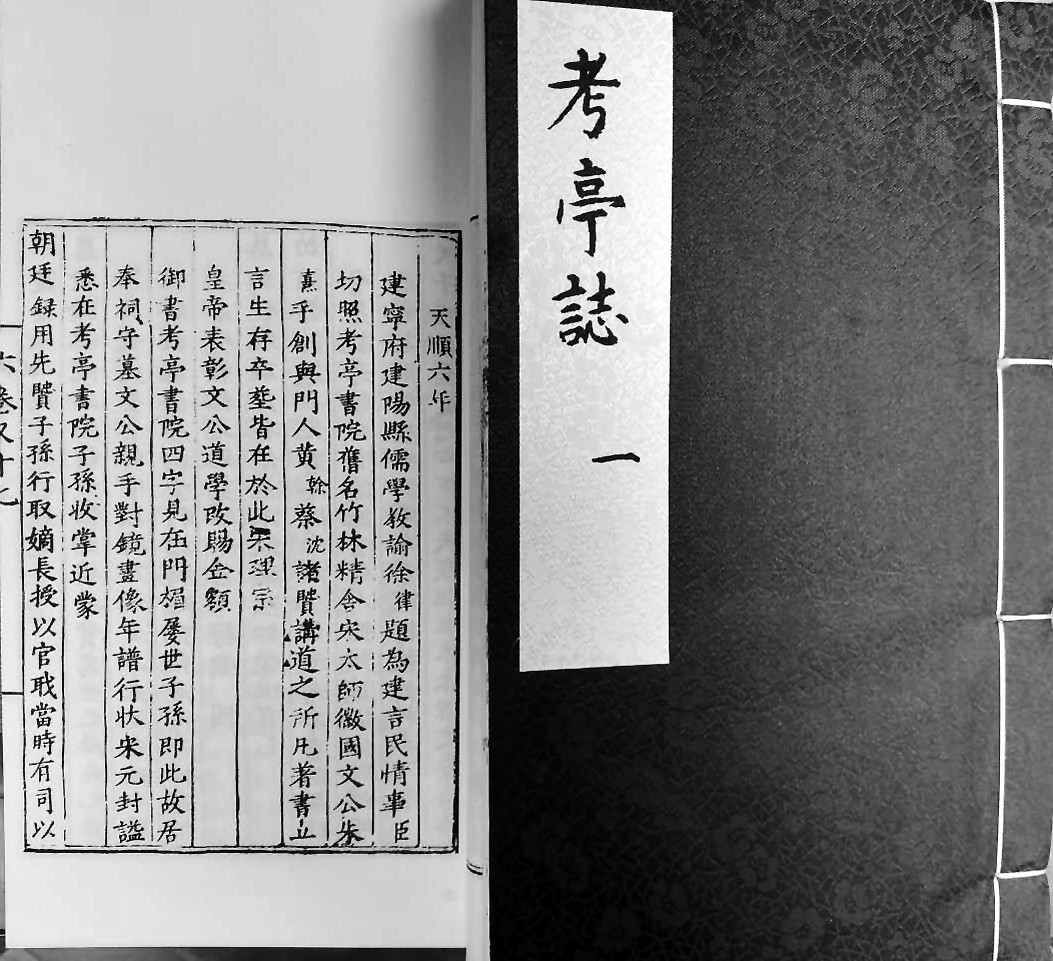 考亭誌
一
天順六年
建寧府建陽縣儒學教諭徐律題為建言民情事臣
切照考亭書院舊名竹林精舍宋太師徽國文公朱
熹手創與門人黃榦蔡沈諸賢講道之所凡著書立
言生存卒塟皆在於此宋理宗
皇帝表彰文公道學改賜金額
御書考亭書院四字見在門楣屡世子孫即此故居
奉祠守墓文公親手對鏡畫像年譜行狀宋元封謚
悉在考亭書院子孫收掌近蒙
朝廷録用先賢子孫行取嫡長授以官職當時有司以